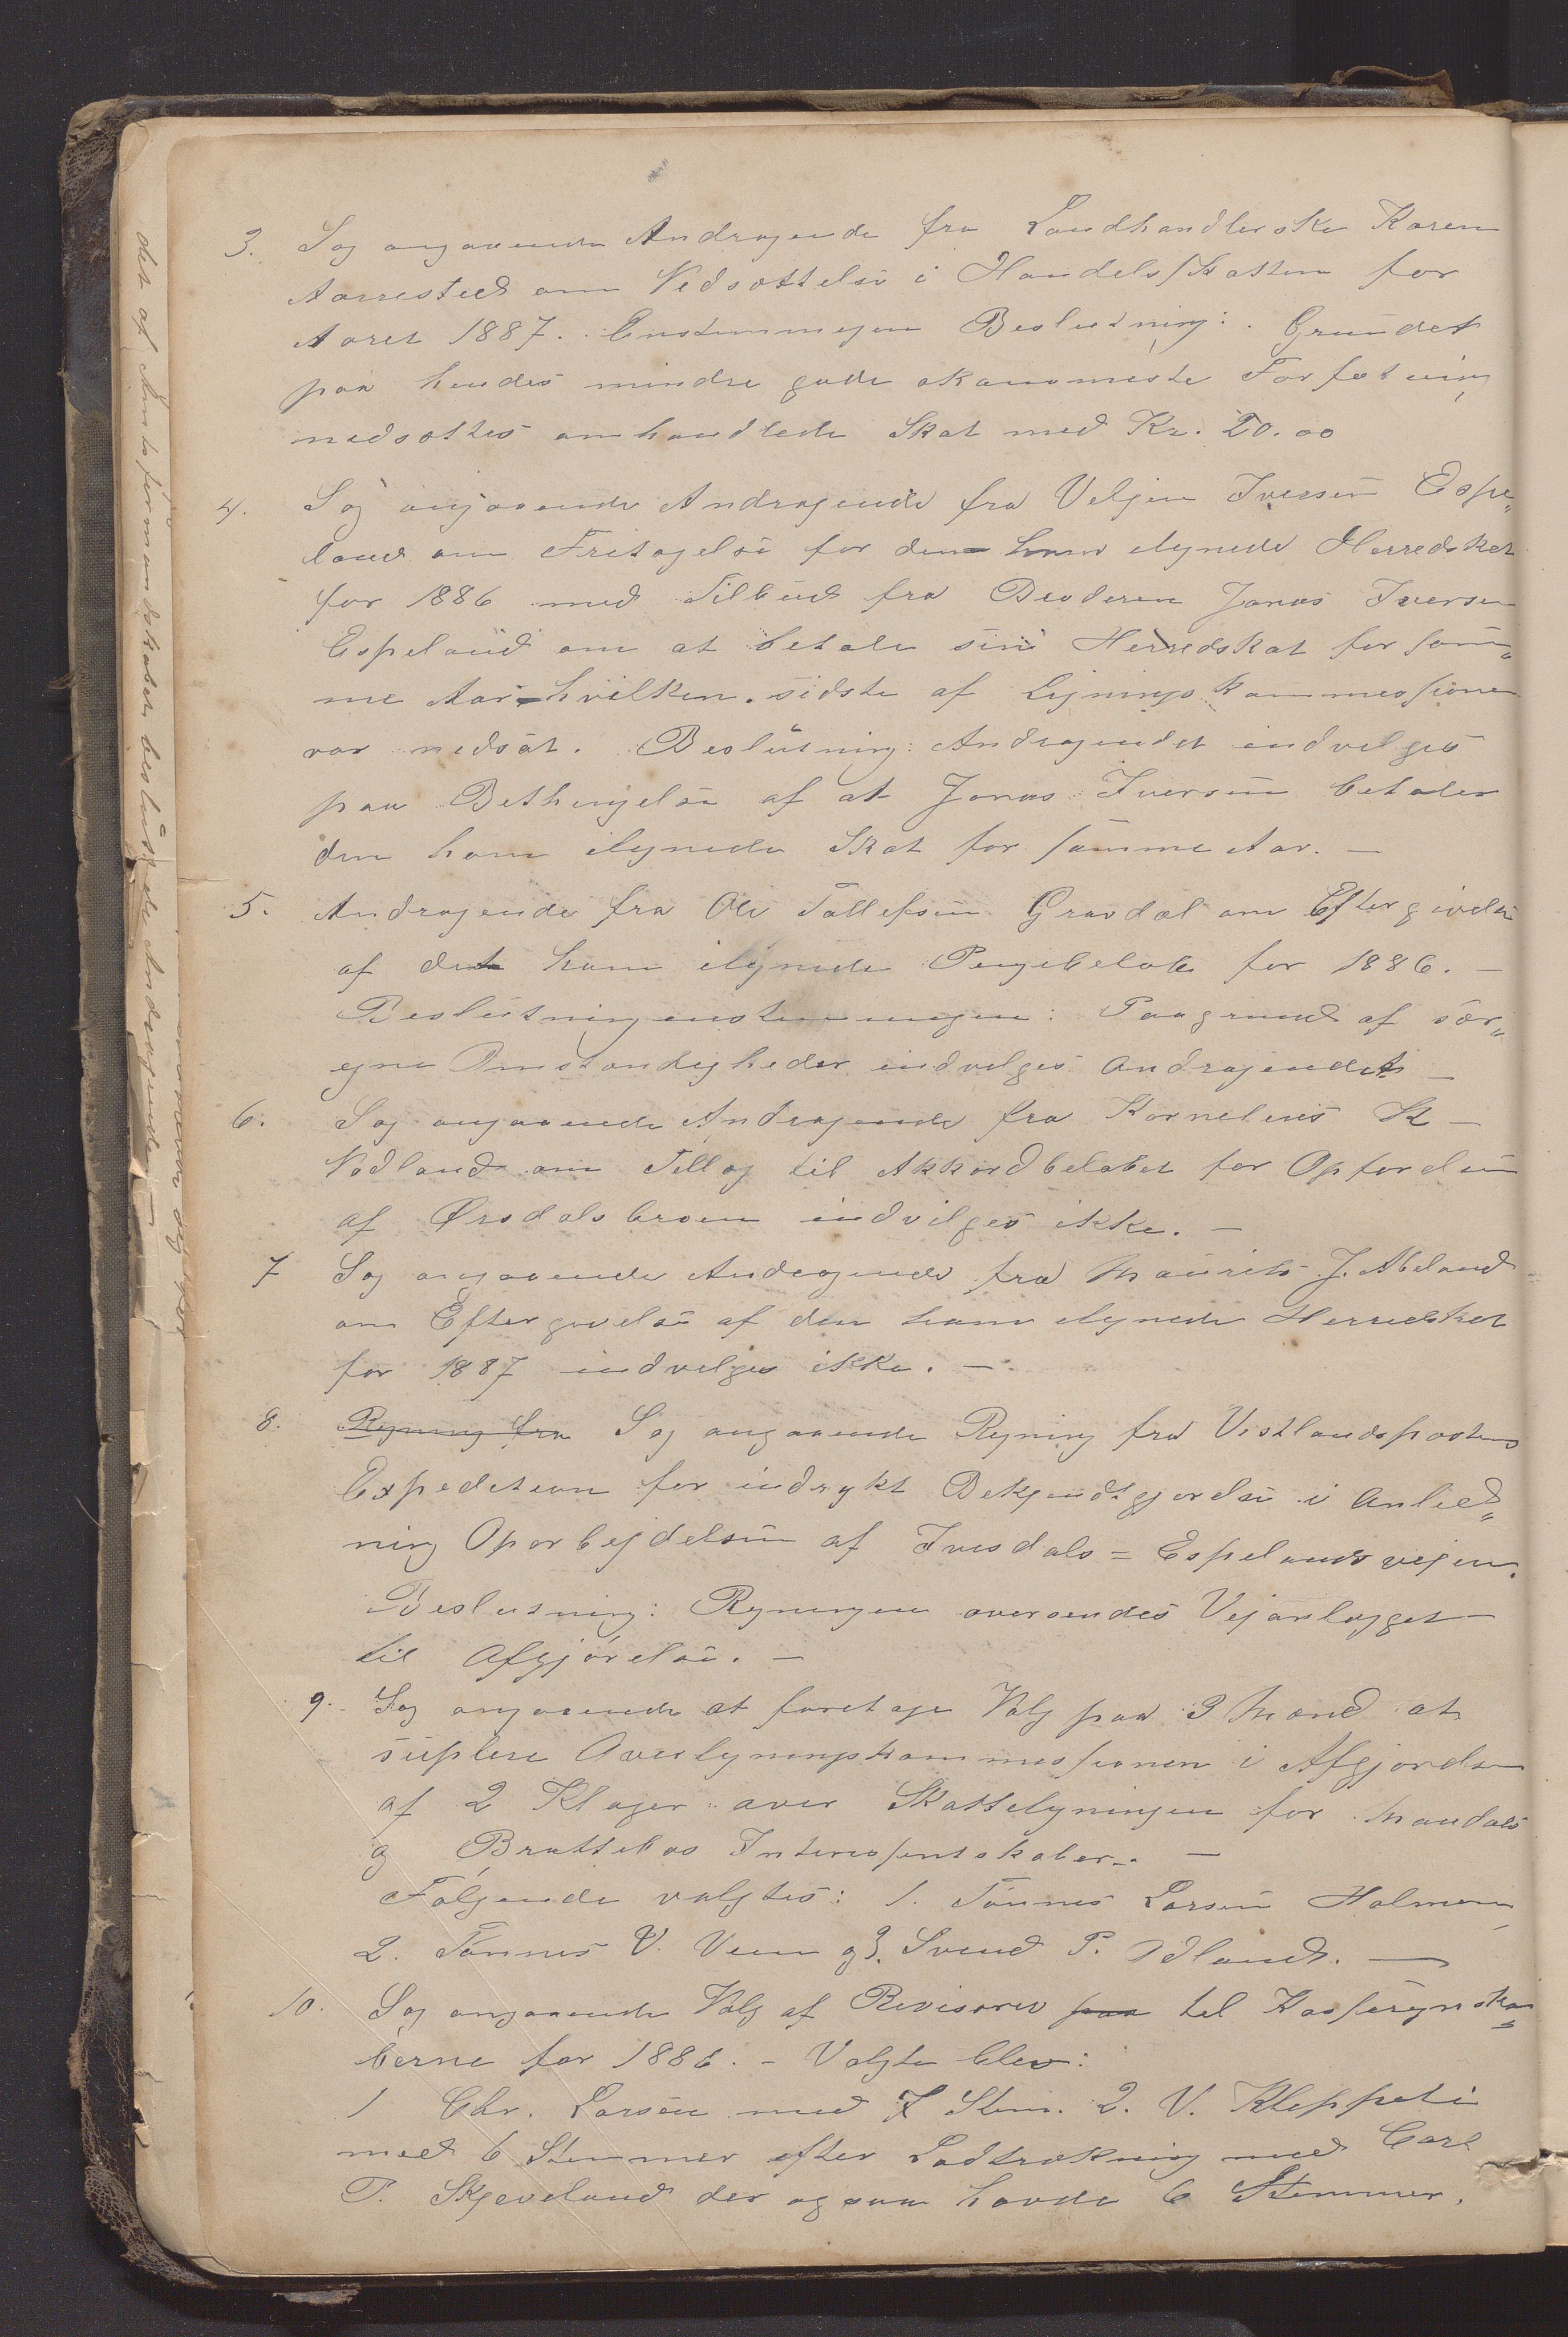 3. Sag angaaende Andragende fra Landhandlerske Karen
Aarrestad om Nedsættelse i Handelsskatten for
Aaret 1887. Enstemmigen Beslutning: Grundet
paa hendes mindre gode økonomiske Forfatning
nedsættes omhandlede Skat med Kr. 20.00
4. Sag angaaende Andragende fra Veljen Iversen Espe„
land om Fritagelse for den ham ilignede Herredskat
for 1886 med Tilbud fra Broderen Jonas Iversen
Espeland om at betale sin Herredskat for sam„
me Aar hvilken sidste af Ligningskommissionen
var nedsat. Beslutning: Andragendet indvilges
paa Bethingelse af at Jonas Iversen betaler
den ham ilignede Skat for samme Aar. —
5. Andragende fra Ole Tollefsen Gravdal om Eftergivelse
af det ham ilignede Pengebeløb for 1886. —
Beslutning enstemmigen: Paagrund af sær„
egne Omstændigheder indvilges Andragendet —
6. Sag angaaende Andragende fra Kornelius K —
Vadland om Tillæg til Akkordbeløbet for Opførelsen
af Ørsdalsbroen indvilges ikke. —
7 Sag angaaende Andragende fra Maurits J. Abeland
om Eftergivelse af den ham ilignede Herredskat
for 1887 indvilges ikke. —
8. Regning fra Sag angaaende Regning fra Vestlandspostens
Expedition for indrykt Bekjendtgjørelse i Anled„
ning Oparbejdelsen af Ivesdals= Espelandsvejen.
Beslutning: Regningen oversendes Vejanlægget —
til Afgjørelse. —
9. Sag angaaende at foretage Valg paa 3 Mænd at
suplere Overligningskommissionen i Afgjørelsen
af 2 Klager over Skatteligningen for Maudals
og Brattebøs Interessentskaber. —
Følgende valgtes: 1. Tønnes Larsen Holmen,
2. Tønnes V. Veen og 3. Svend P. Ødland. —
10. Sag angaaende Valg af Revisorer paa til Kasseregnska„
berne for 1886. – Valgte blev:
1 Chr. Larsen med 7 Stem. 2. V. Kleppeli
med 6 Stemmer efter Lodtrækning med Carl
P. Skjeveland der ogsaa havde 6 Stemmer.
det af Amtsformandskabet besluttede Andragende —